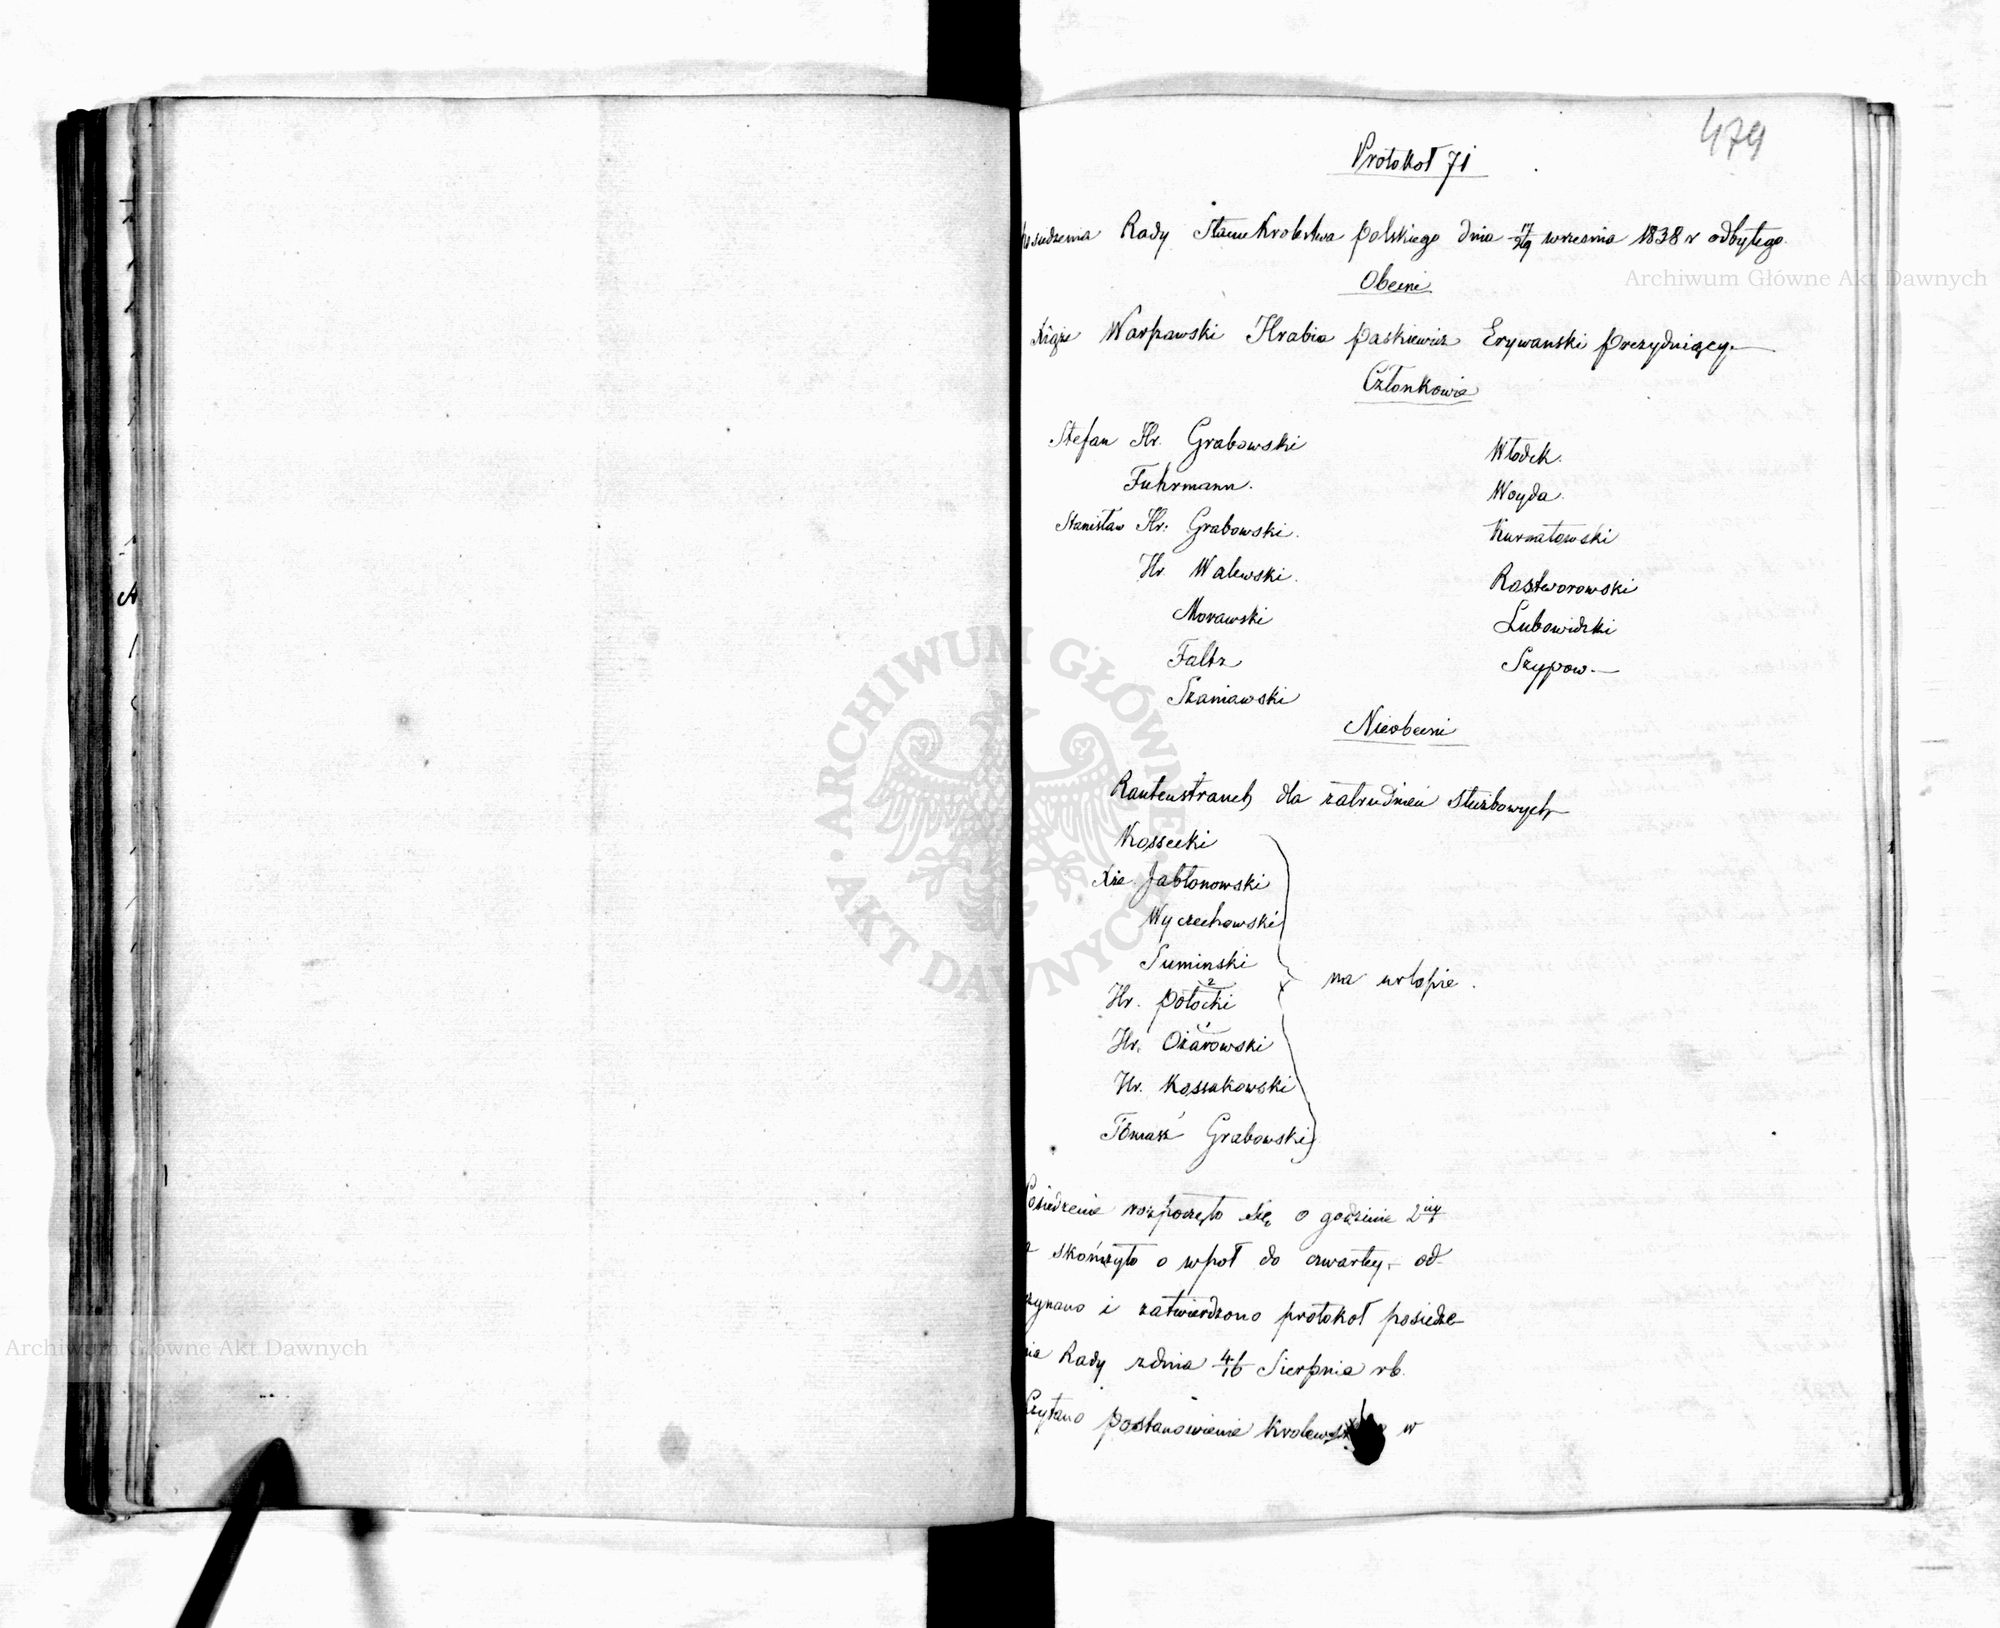 479
Protokoł 71
Posiedzenia Rady Stanu Krolestwa Polskiego dnia 17/29 wrzesnia 1838 r odbytego.
Obecni
Xiąże Warszawski Hrabia Paskiewicz Erywanski prezyduiący.—
Członkowie
Stefan Hr. Grabowski
Fuhrmann.
Stanisław Hr: Grabowski.
Hr. Walewski.
Morawski
Faltz
Szaniawski
Włodek.
Woyda.
Kurnatowski
Rostworowski
Lubowidzki
Szypow.—
Nieobecni
Rautenstrauch dla zatrudnień służbowych
Kossecki
Xże. Jabłonowski
Wyczechowski
Suminski
Hr. Potocki 2
Hr. Ożarowski 1
Hr. Kossakowski
Tomasz Grabowski
na urlopie.
Posiedzenie rozpoczęto się o godzinie 2iey
a skończyło o wpoł do czwartey,— od-
czynano i zatwierdzono protokoł posiedze-
nia Rady zdnia 4/16 Sierpnia rb.
Czytano Postanowienie w
Archiwum Główne Akt Dawnych
ARCHIWUM GŁÓWNE AKT DAWNYCH
Archiwum Główne Akt Dawnych